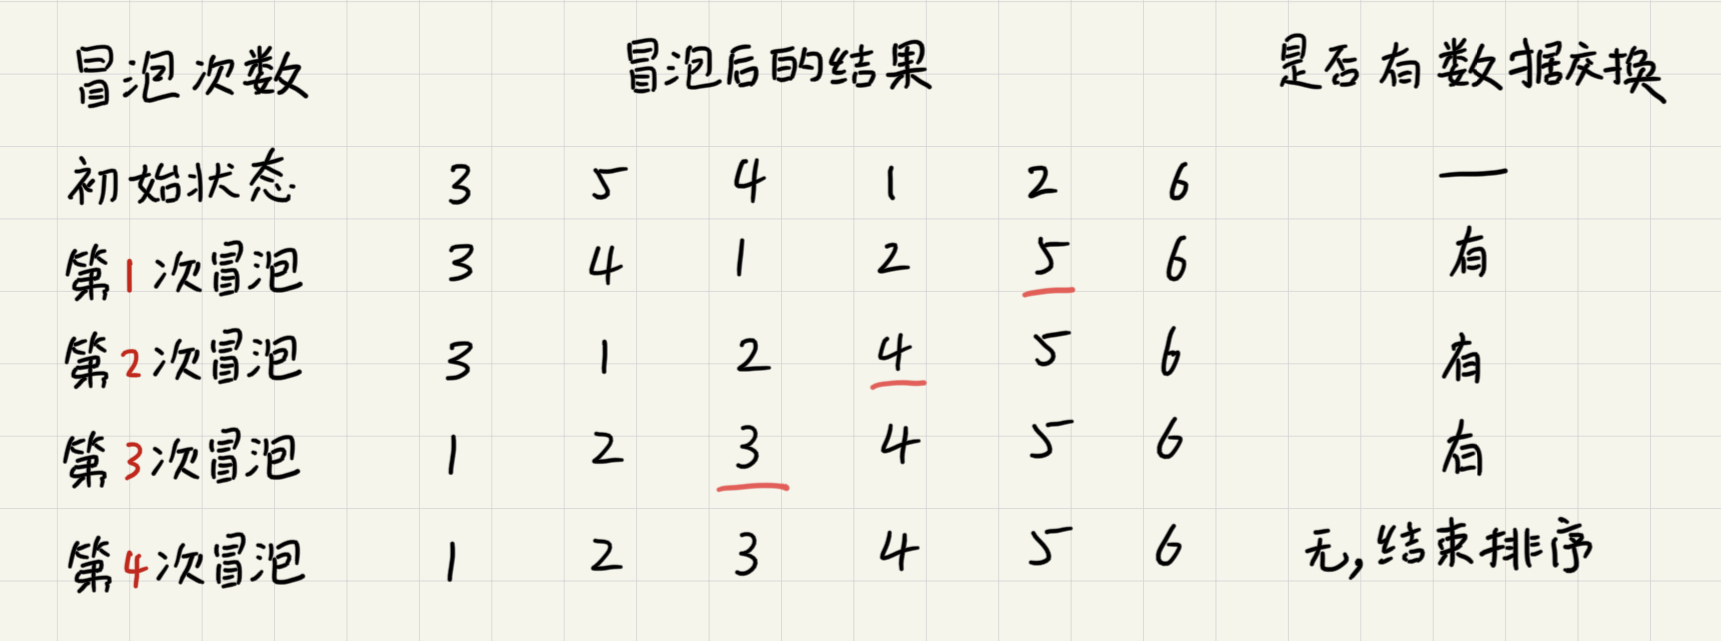 冒泡次数 冒泡后的结果 是否有数据交换
初始状态 3 5 4 1 2 6 —
第1次冒泡 3 4 1 2 5 6 有
第2次冒泡 3 1 2 4 5 6 有
第3次冒泡 1 2 3 4 5 6 有
第4次冒泡 1 2 3 4 5 6 无,结束排序